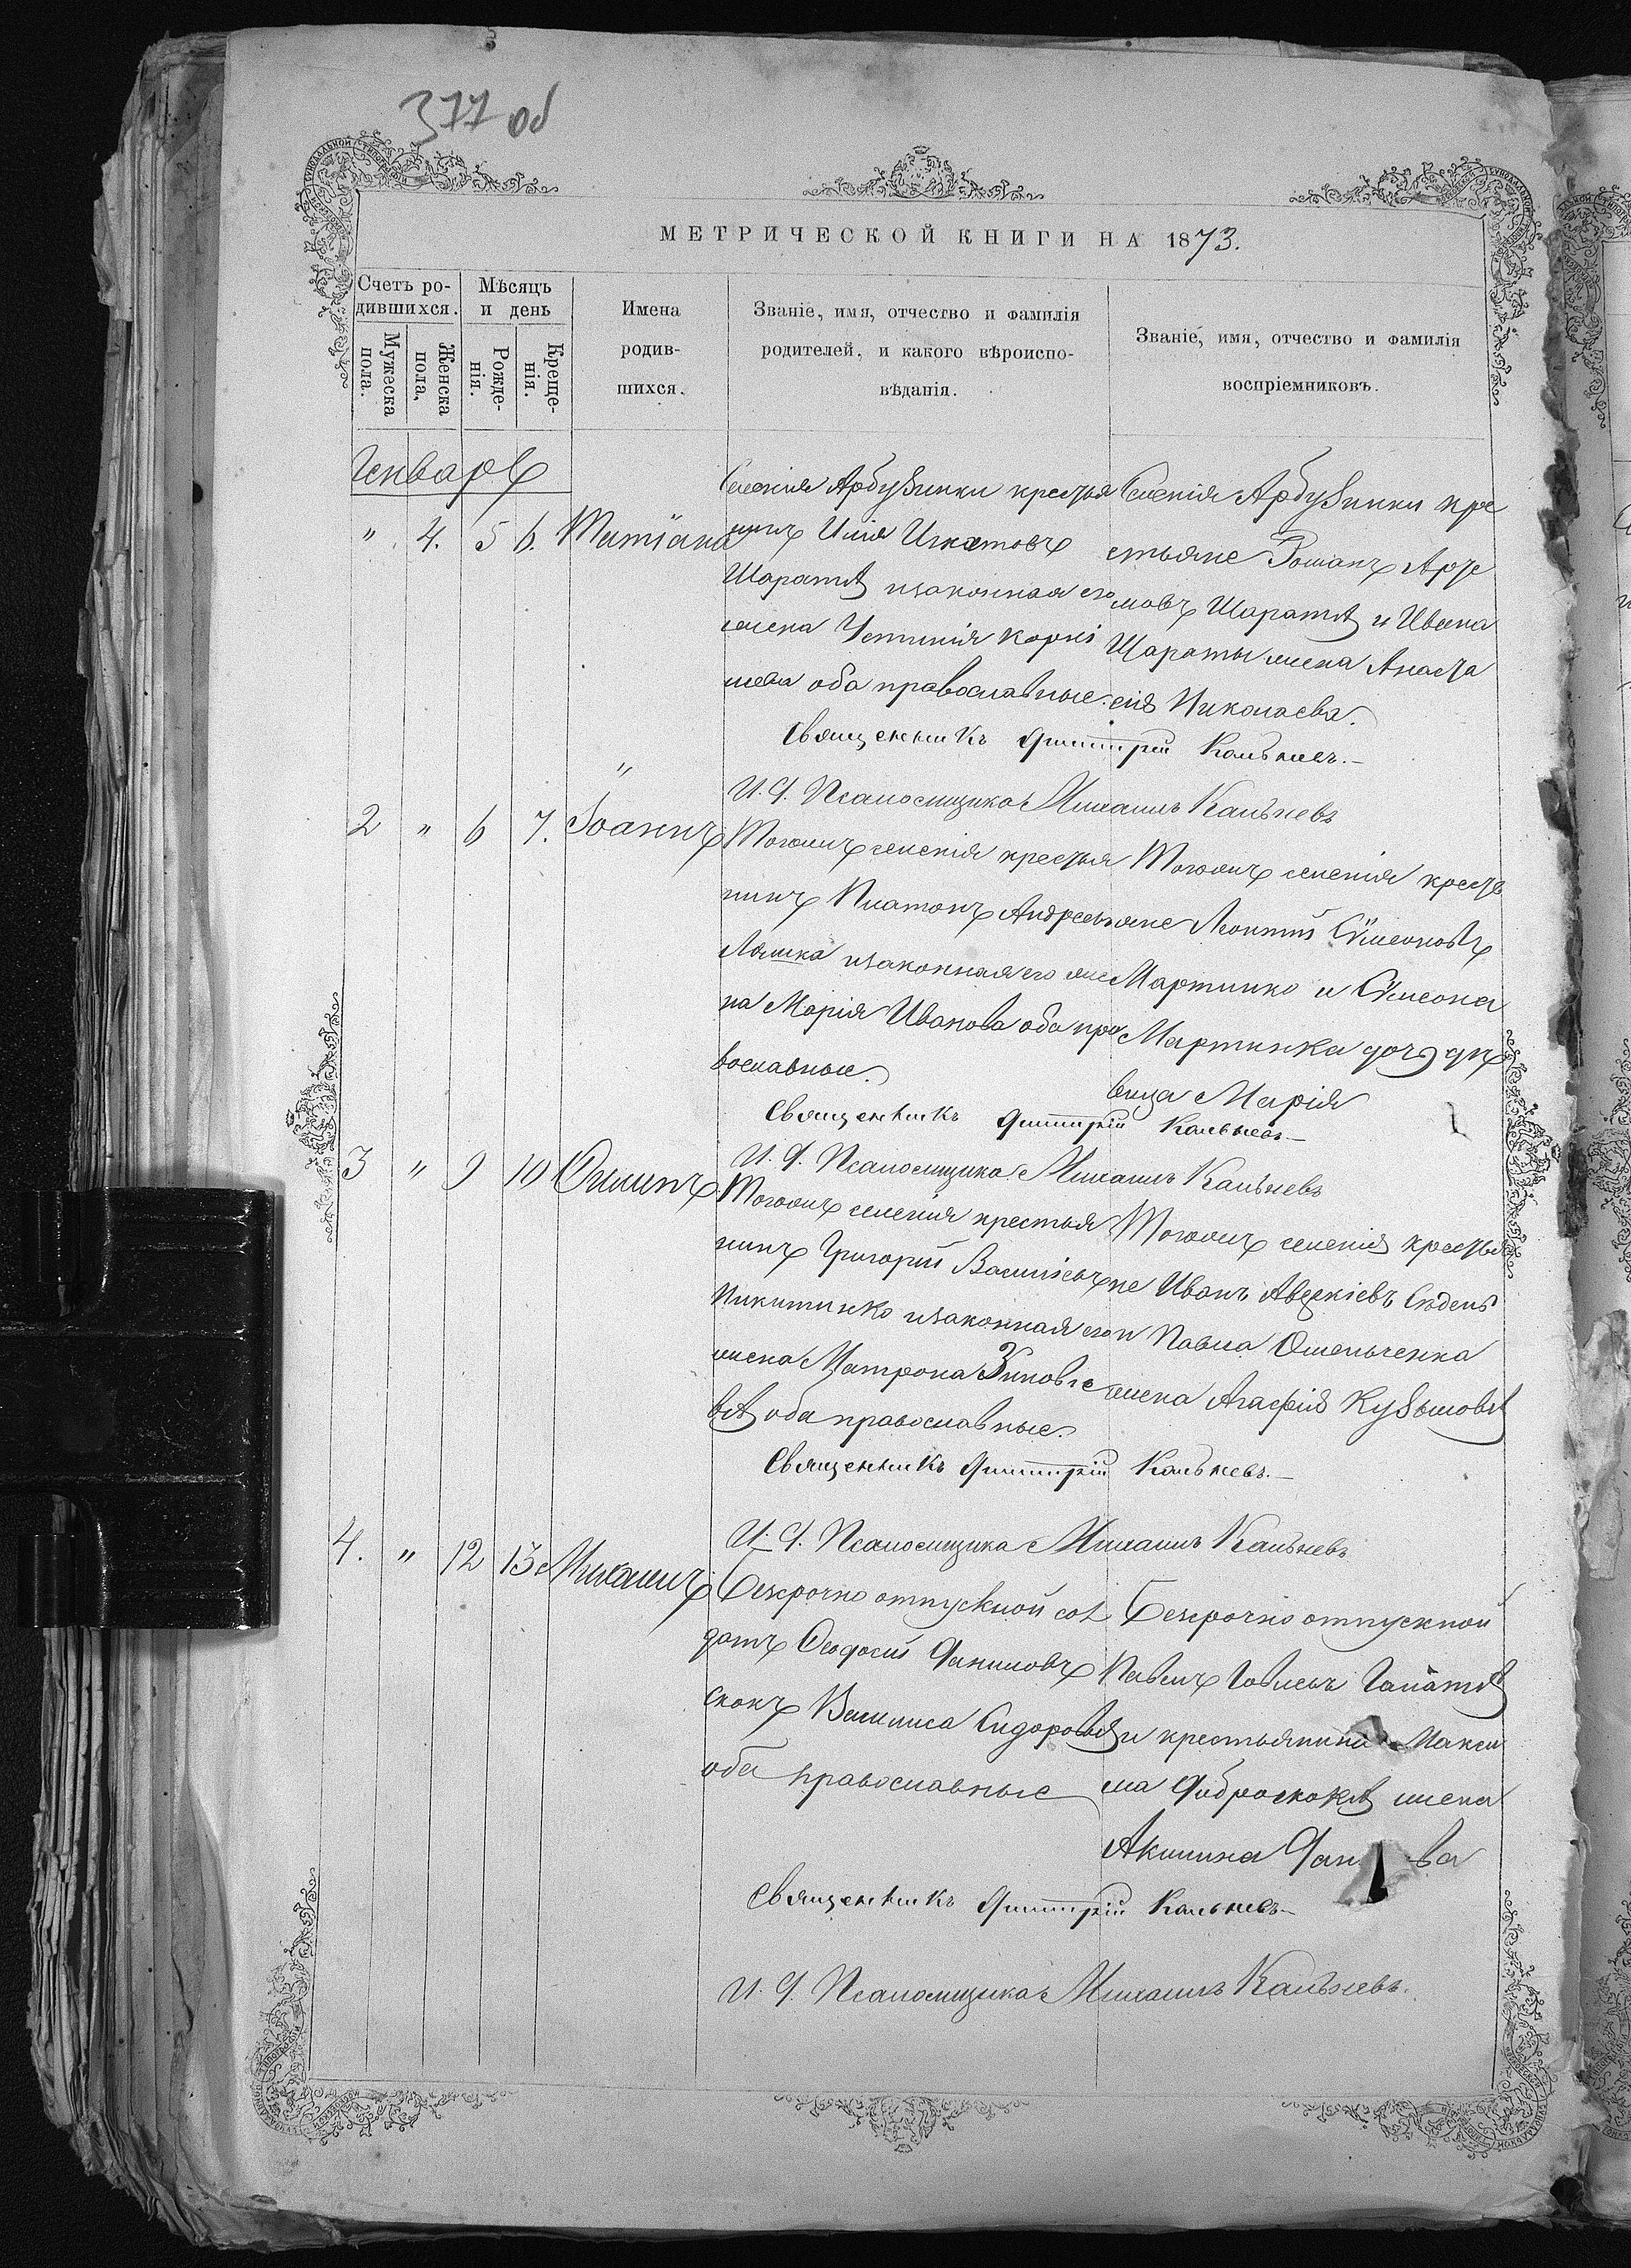 377 об
МЕТРИЧЕСКОЙ КНИГИ НА 1873.
Счетъ ро-
дившихся.
Мужеска
пола.
Женска
пола,
Мѣсяцъ
и день
Рожде-
нія.
Креще-
нія.
Имена
родив-
шихся.
Званіе, имя, отчество и фамилія
родителей, и какого вѣроиспо-
вѣданія.
Званіе, имя, отчество и фамилія
воспріемниковъ.
Генварь
" 4. 5 6. Татіана
Селенія Арбузинки крестья
нинъ Илія Игнатовъ
Шарата изаконная его
жена Устинія Корні
лиева оба православные.
Селенія Арбузинки кре
стьяне Романъ Арте
мовъ Шарата и Ивана
Шараты жена Анаста
сія Николаева.
Священникъ Димитрій Кальневъ.
И. Д. Псаломщика Михаилъ Кальневъ
2 " 6 7. Іоаннъ
Тогожъ селенія крестья
нинъ Платонъ Андреевъ
Ляшко изаконная его же
на Марія Иванова оба пра
вославные.
Тогожъ селенія кресть
яне Леонтій Сѵмеоновъ
Мартинко и Сѵмеона
Мартинка дочь дѣ
вица Марія
Священникъ Димитрій Кальневъ
И. Д. Псаломщика Михаилъ Кальневъ
3 " 9 10 Филипъ
Тогожъ селенія крестья
нинъ Григорій Васильевъ
Никитинко изаконная его
жена Матрона Зиновіе
ва оба православные.
Тогожъ селенія крестья
не Иванъ Авдекіевъ
и Павла Омельченка
жена Агафія Кузьмова
Священникъ Димитрій Кальневъ.
И. Д. Псаломщика Михаилъ Кальневъ
4. " 12 13 Михаилъ
Безсрочно отпускной сол
датъ Феодосій Даниловъ
Скокъ Василиса Сидорова
оба православные
Безсрочно отпускной
Павелъ
и крестьянина Макси
ма Доброскока жена
Акилина
Священникъ Димитрій Кальневъ
И. Д. Псаломщика Михаилъ Кальневъ.